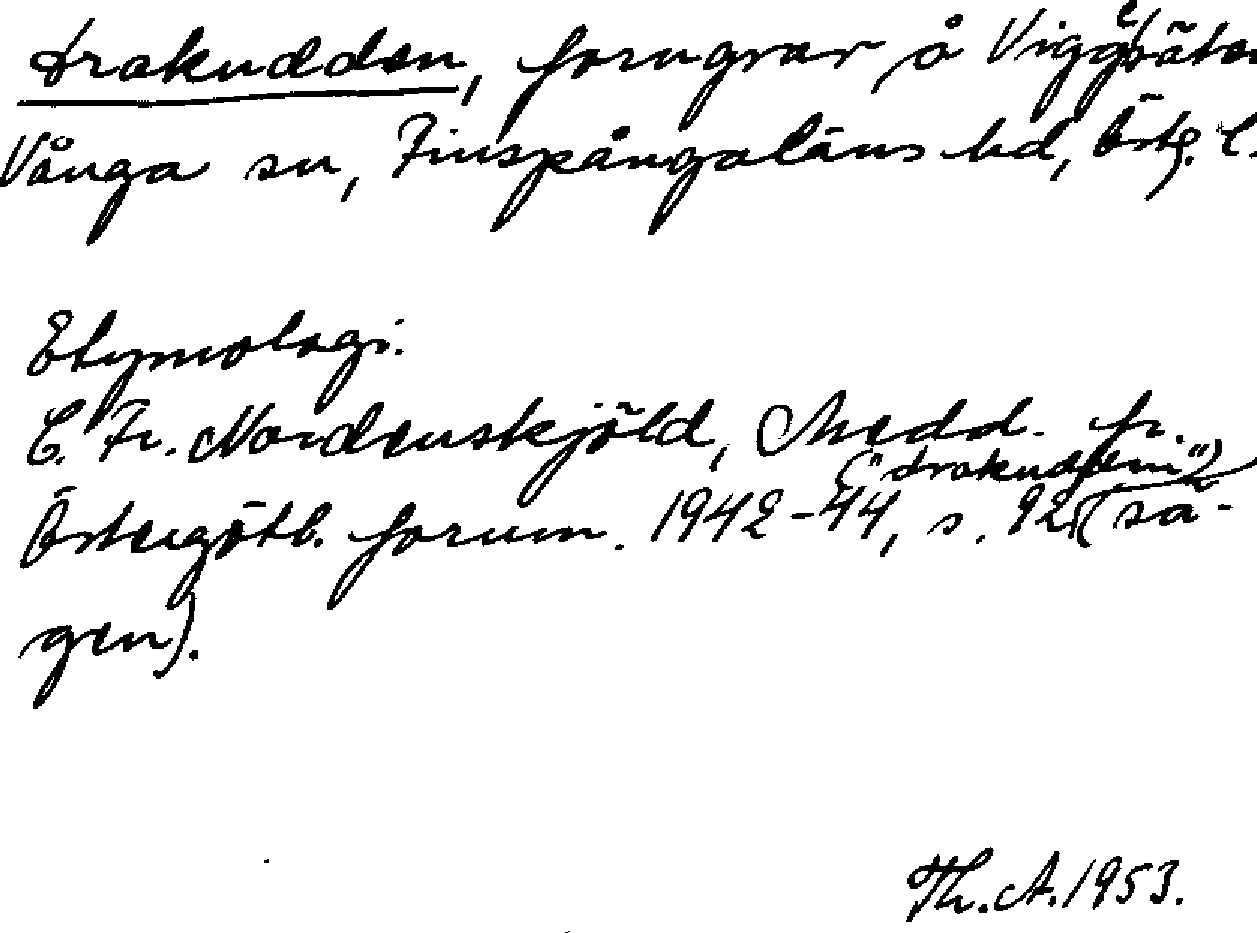 Drakudden, forngrav å Viggebåten
Vånga sn, Finspångaläns hd, Östg. l.
Etymologi.
C. Fr. Nordenskjöld, Medd. fr.
("drakudden")
Östergötl. fornm. 1942-44, s. 92 (sä-
gen).
Th. A. 1953.